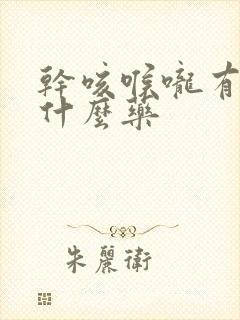 幹咳喉嚨有
什麼藥
朱麗衛